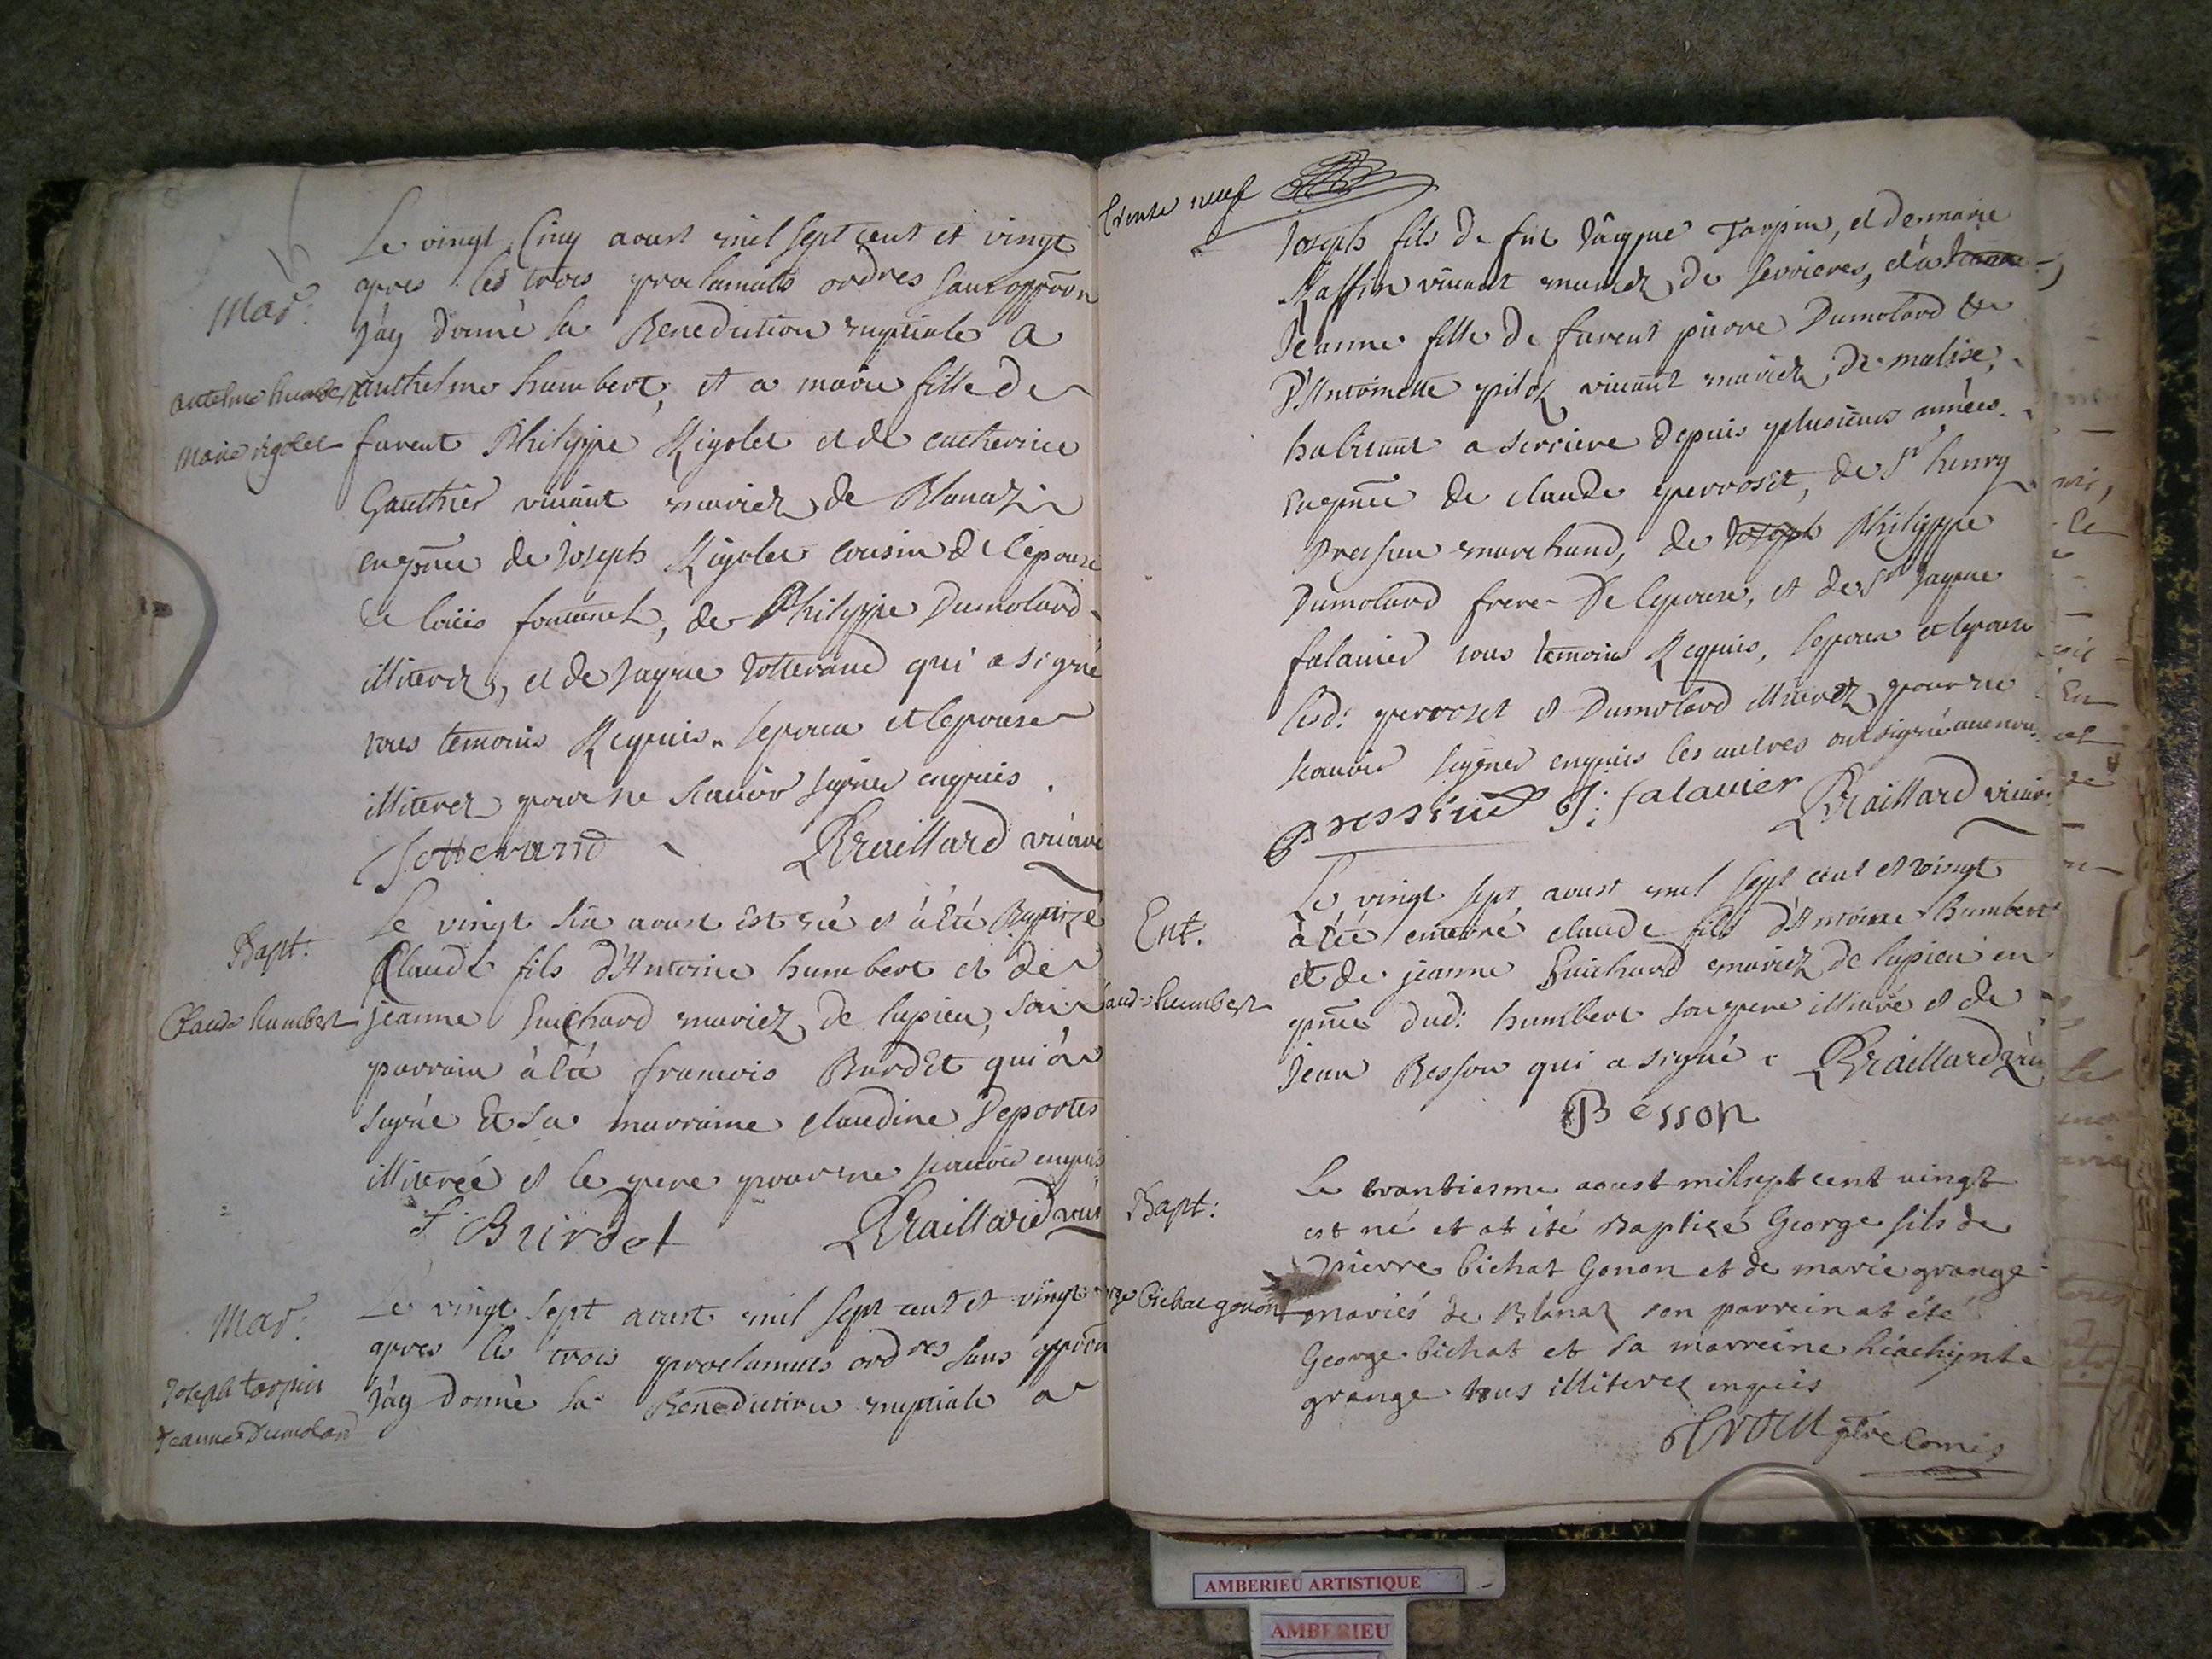 Le vingt Cinq aoust mil sept cent et vingt
apres les trois proclamats ordres sans oppoôn
Mar:
j'ay donné la Benediction nuptiale a
Antelme humbert
anthelme humbert, et a marie fille de
Marie rigolet
furent Philippe Rigolet et de catherine
Gauthier vivant mariez de Blanaz
en pnce de Joseph Rigolet cousin de l'epouse
de loüis, de Philippe Dumolard
illiterez, et de Jaque Jotterand qui a signé
tous temoins Requis. l'epoux et l'epouse
illiterez pour ne scavoir signer enquis.
Jotterand Braillard vicaire
Bapt:
Le vingt six aoust est né et à été Baptizé
Claude fils d'Antoine humbert et de
Claude humbert
jeanne Guichard mariez de lupieu, son
parrain à été francois Burdet qui à
signé Et sa marraine claudine Deportes
illiterée et le pere pour ne scavoir enquis
f. Burdet Braillard vic
Mar:
Le vingt sept aoust mil sept cent et vingt
apres les trois proclamats ordres sans oppoôn
Joseph tarpin
Jeanne Dumolard
j'ay donné la Benediction nuptiale a
trente neuf
Joseph fils de fut Jâque Tarpin, et de marie
Raffin vivant mariez de serrieres, et a
Jeanne fille de furent pierre Dumolard et
D'Antoinette piloz vivant mariez de malise,
habitant a serriere depuis plusieurs années.
en pnce de claude perroset, de Sr henry
Pressieu marchand, de Joseph Philippe
Dumolard frere De l'epouse, et de Sr Jaque
falavier tous temoins Requis, l'epoux et l'epouse
lesd: perroset et Dumolard illiterez pour ne
scavoir signer enquis les autres ont signé avec nous
Pressieu J: falavier Braillard vicair
Ent.
Le vingt sept aoust mil sept cent et vingt
à été enterré claude fils d'Antoine humbert
et de jeanne Guichard mariez de lupieu en
Claude humbert
pnce dud: humbert son pere illiteré et de
Jean Besson qui a signé. Braillard vic
Besson
Bapt:
Le trantiesme aoust mil sept cent vingt
est né et at ité Baptizé George fils de
pierre bichat Gonon et de marie grange
George bichat gonon
mariés de Blanaz son parrein at été
George bichat et sa marreine hiachynte
grange tous illiterez enquis
ptre Comis
AMBERIEU ARTISTIQUE
AMBERIEU